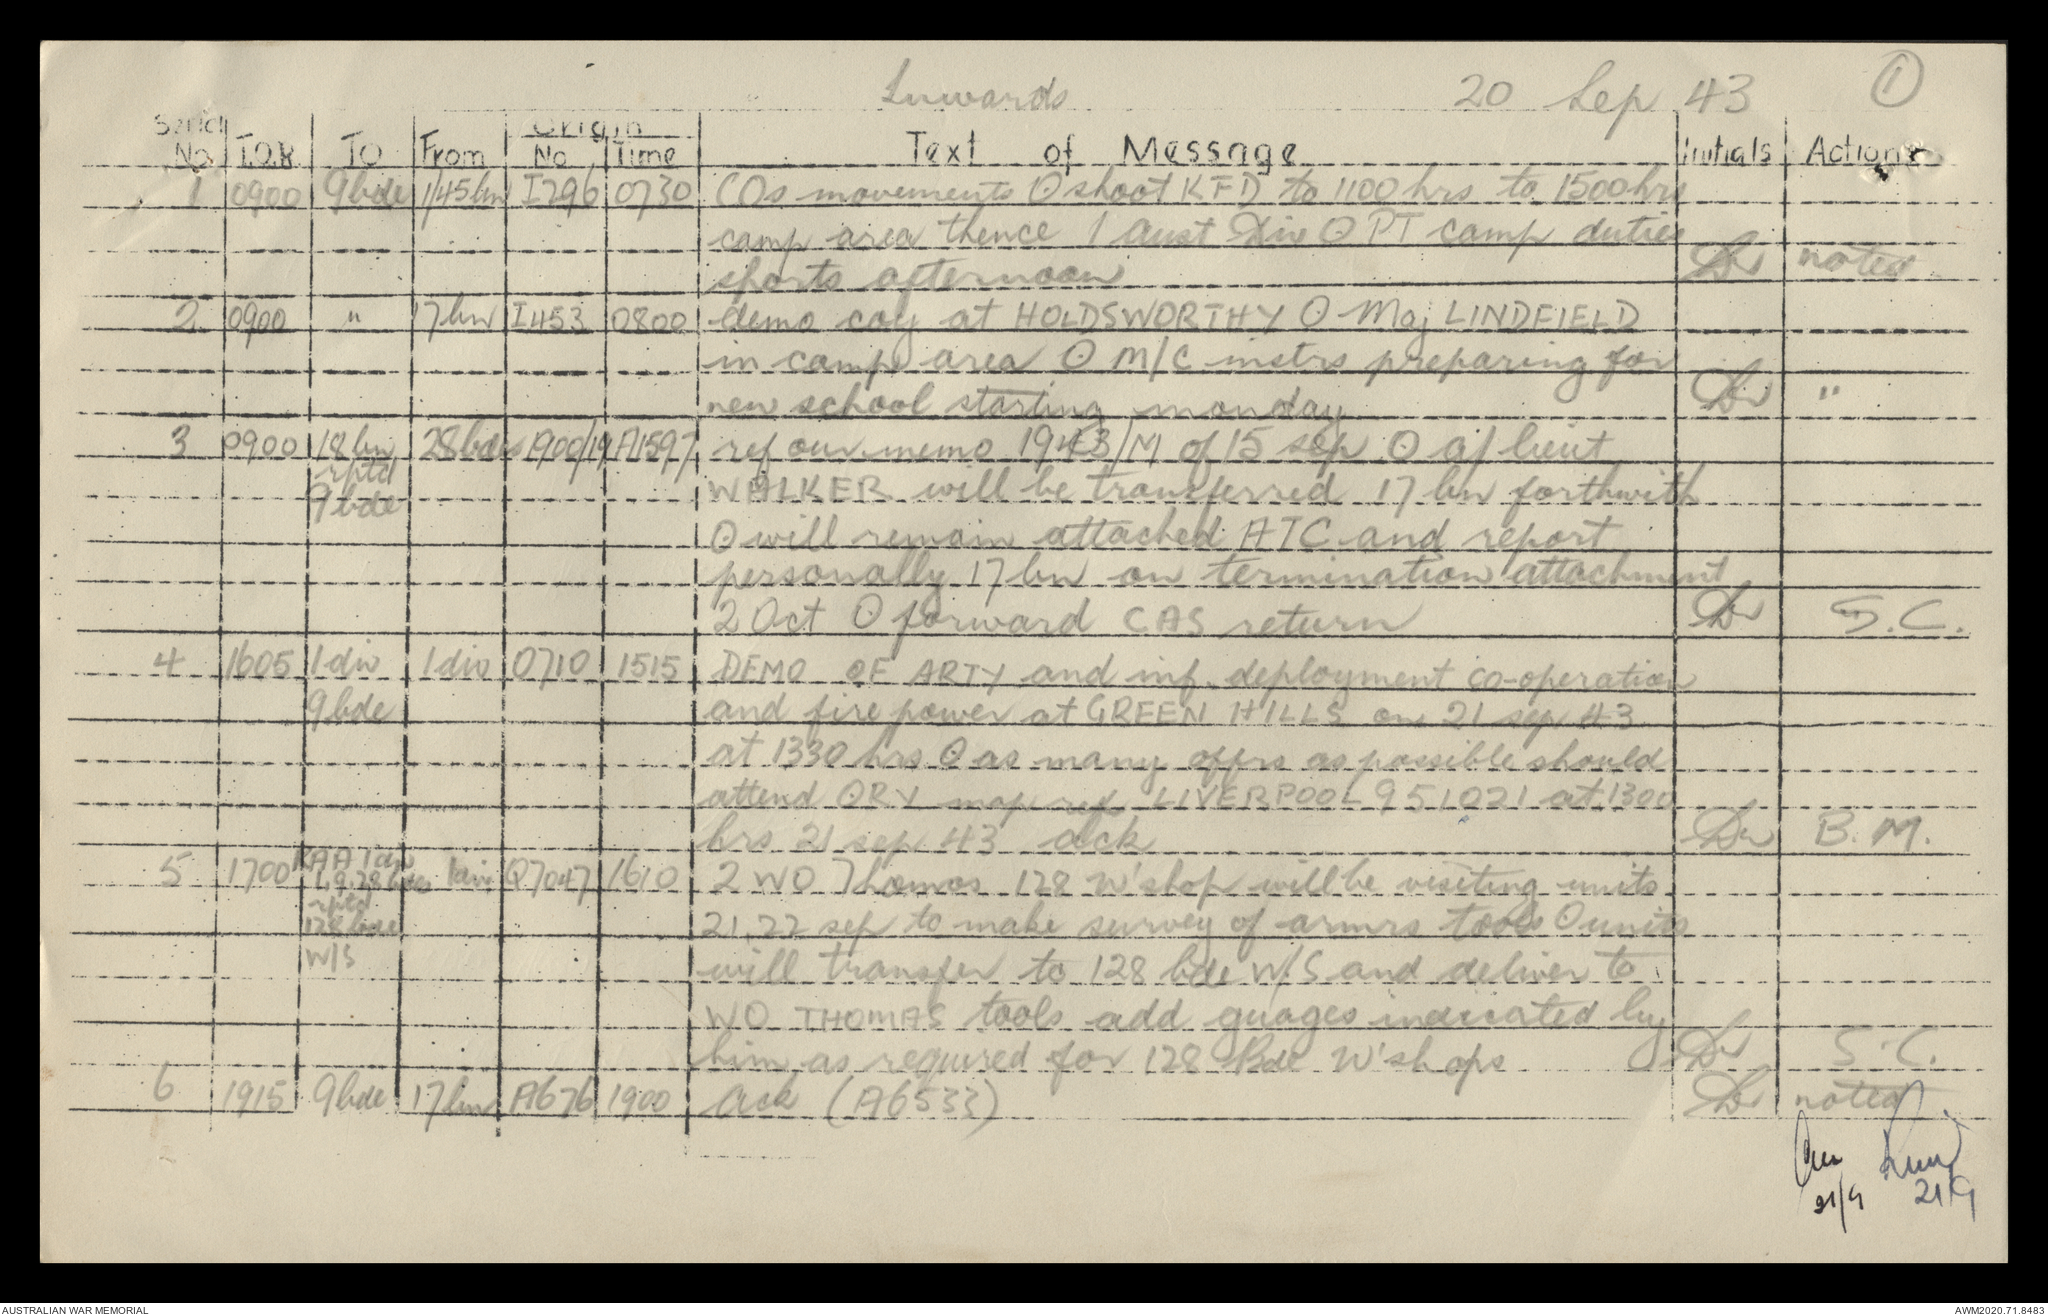 Inwards 20 Sep 43 1
Serial Origin
No T.O.R To From No Time Text of Message Initials Action
1 0900 9 bde 1/45 bn I296 0730 COs movements O shoot KFD to 1100 hrs to 1500 hrs
camp area thence 1 Aust Div O PT camp duties
sports afternoon noted
2 0900 " 17 bn I453 0800 demo coy at HOLDSWORTHY O Maj LINDFIELD
in camp area O M/C instrs preparing for
new school starting monday "
3 0900 18 bn 28 bde 1900/19 A1597 ref our memo 1943/M of 15 sep O a/ lieut
rptd
9 bde WALKER will be transferred 17 bn forthwith
O will remain attached ATC and report
personally 17 bn on termination attachment
2 Oct O forward CAS return S.C.
4 1605 1 div 1 div O710 1515 DEMO OF ARTY and inf deployment co-operation
9 bde and fire power at GREEN HILLS on 21 sep 43
at 1330 hrs O as many offrs as possible should
attend O RV map ref LIVERPOOL 951021 at 1300
hrs 21 sep 43 ack B.M.
5 1700 RAA 1 div 1 div Q7047 1610 2 WO Thomas 128 W'shop will be visiting units
1,9,28 bdes
rptd
128 bde 21,22 sep to make survey of armrs tools O units
W/S will transfer to 128 bde W/S and deliver to
WO THOMAS tools add guages indicated by
him as required for 128 Bde W'shops S.C.
6 1915 9 bde 17 bn A676 1900 Ack (A6533) noted
21/9 21/9
AUSTRALIAN WAR MEMORIAL AWM2020.71.8483